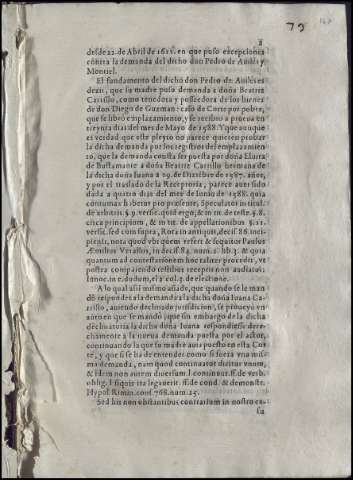 79
2
desde 22. de Abril de 1615. en que puso excepciones
cõtra la demanda del dicho don Pedro de Auilès y
Montiel.
El fundamento del dicho don Pedro de Auilès es
dezir, que su madre puso demanda a doña Beatriz
Carrillo, como tenedora y posseedora de los bienes
de don Diego de Guzman: caso de Corte por pobre,
que se librò emplazamiento, y se recibio a prueua en
treynta dias del mes de Mayo de 1588. Y que aunque
es verdad que este pleyto no parece quieren probar
la dicha demanda por los registros del emplazamien
to, que la demanda consta ser puesta por doña Eluira
de Bustamante a doña Beatriz Carrillo hermana de
la dicha doña Iuana a 19. de Diziẽbre de 1587. años,
y por el traslado de la Receptoria, parece auer sido
dada a quatro dias del mes de Iunio de 1588. quia
contumax habetur pro præsente, Speculator in titul.
de arbitris §.9. versic. quid ergo, & in tit. de teste. §.8.
circa principium, & in tit. de appellationibus §.11.
versic. sed cum supra, Rota in antiquis, decis. 86. inci
pienti, nota quod vbi quem refert & sequitur Paulus
Æmilius Verallus, in decis. 84. num. 2. lib. 3. & quia
quantum ad contestationem hoc taliter procedit, vt
postea comparendo testibus receptis non audiatur.
Innoc. in c. dudum, el 2. col. 3. de electione.
A lo qual assi mismo añade, que quando se le man
dò respondes a la demanda a la dicha doña Iuana Ca
rrillo, auiendo declinado jurisdicion, se proueyò vn
auto en que se mandò, que sin embargo de la dicha
declinatoria la dicha doña Iuana respondiesse dere-
chamente a la nueua demanda puesta por el actor,
continuando la que su madre auia puesto en esta Cor
te, y que si se ha de entender como si fuera vna mis-
ma demanda, nam quod continuatur dicitur vnum,
& idem non autem diuersum. l. continuus. ff. de verb.
oblig. l. si quis ita legauerit. ff. de cond. & demonstr.
Hypol. Rimin. cons. 768. num. 25.
Sed his non obstantibus contrarium in nostro ca-
su